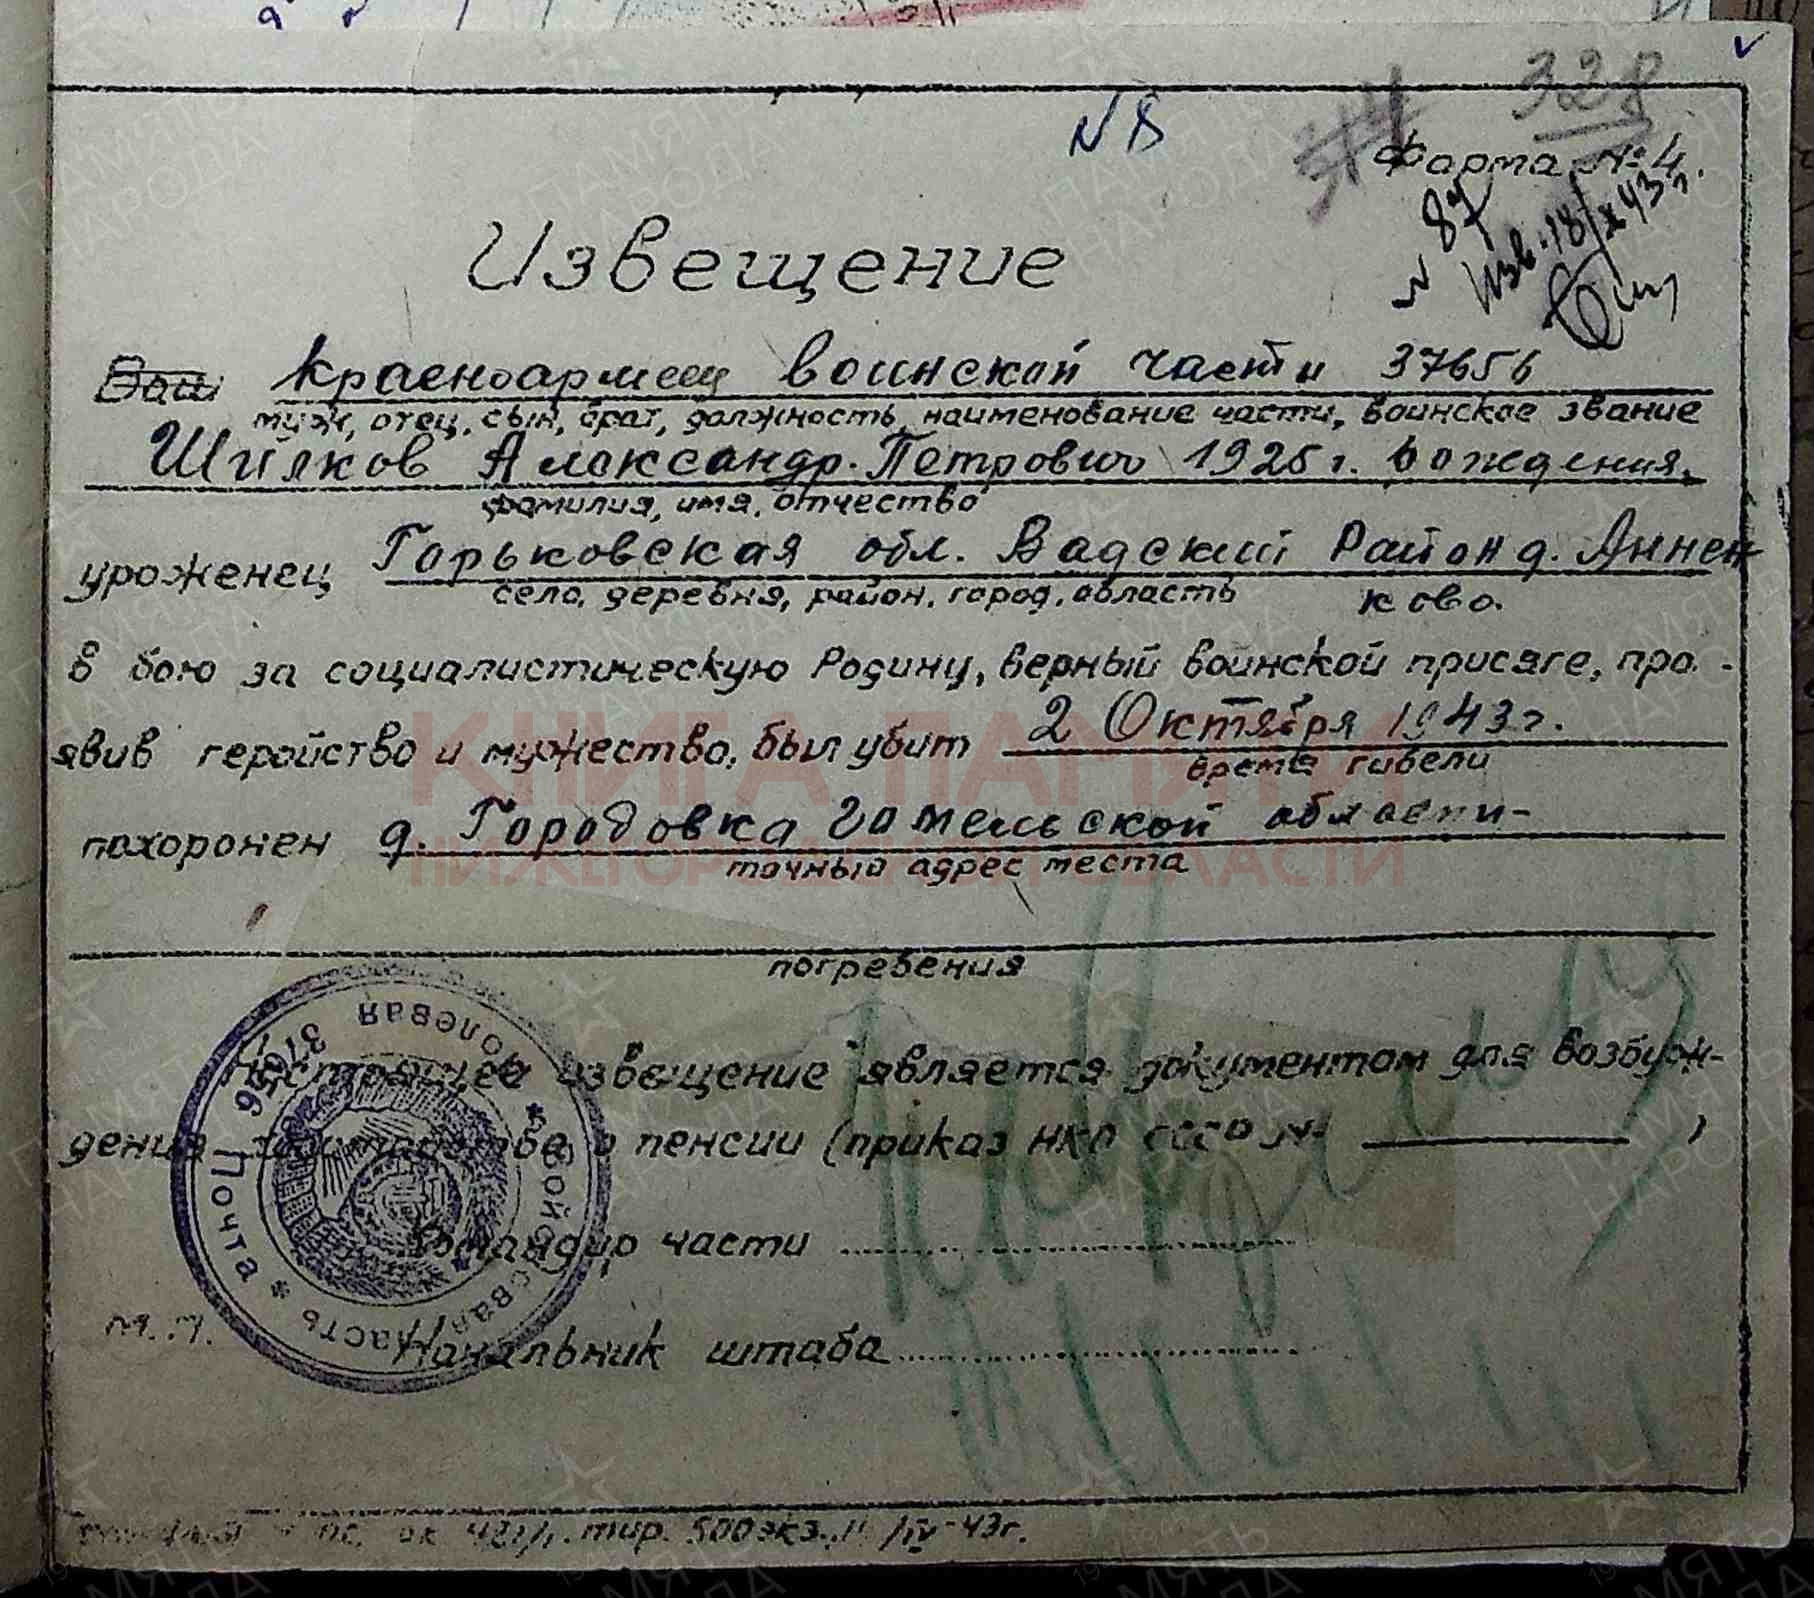 328
N 8
Форма № 4.
N 87
Изв. 18/X 43 г.
Извещение
Ваш красноармеец воинской части 37656
муж, отец, сын, брат, должность, наименование части, воинское звание
Шилков Александр Петрович 1925 г. рождения,
фамилия, имя, отчество
уроженец Горьковская обл. Вадский Район д. Аннен
село, деревня, район, город, область
ково.
в бою за социалистическую Родину, верный воинской присяге, про-
явив геройство и мужество, был убит 2 Октября 1943 г.
время гибели
похоронен д. Городовка Гомельской области-
точный адрес места
погребения
Настоящее извещение является документом для возбуж-
дения ходатайства о пенсии (приказ НКО СССР № )
Командир части
Начальник штаба
М. П.
Полевая Почта 37656 * войсковая часть *
тир. 500 экз. /IV-43 г.
КНИГА ПАМЯТИ
НИЖЕГОРОДСКОЙ ОБЛАСТИ
ПАМЯТЬ НАРОДА